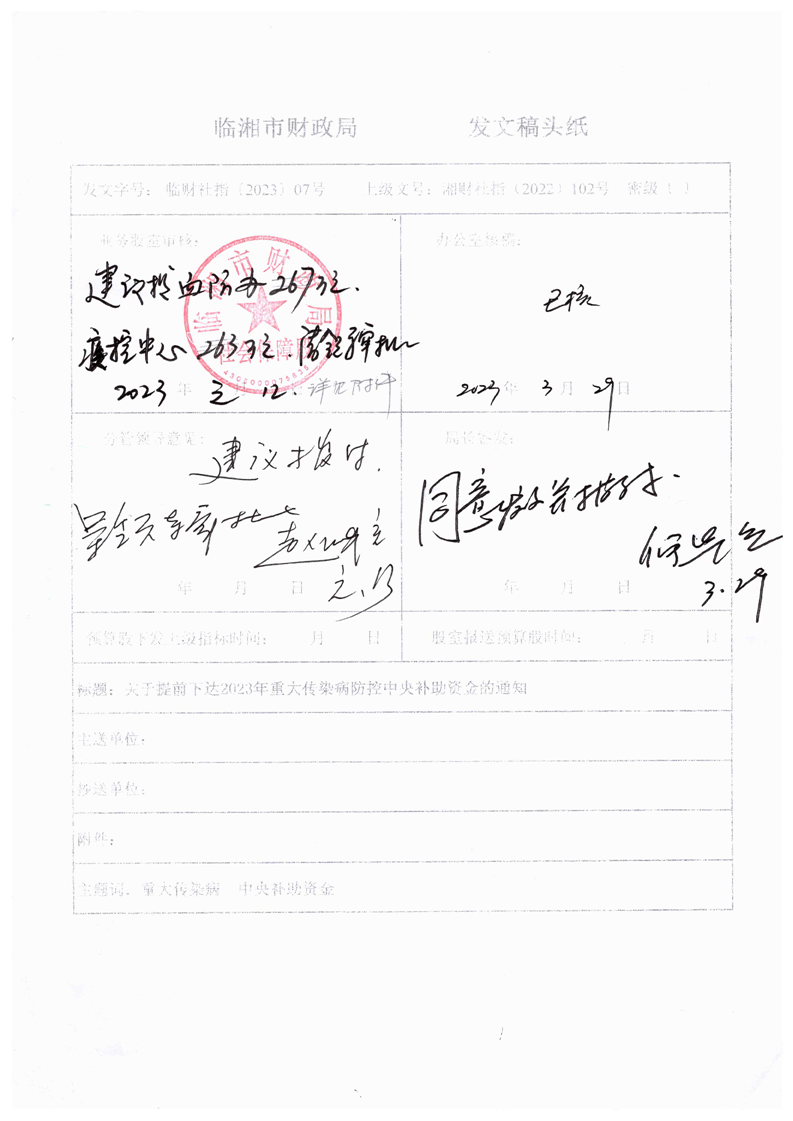 临湘市财政局 发文稿头纸
发文字号：临财社指〔2023〕07号 上级文号：湘财社指〔2022〕102号 密级（ ）
业务股室审核：
办公室核稿：
建议拨血防办267万元.
已核
疾控中心 263万元.
2023 年 12. 详见附件
2023 年 3 月 29 日
临湘市财政局
社会保障股
分管领导意见：
局长签发：
建议拨付.
同意
年 月 日
3.29
年 月 日
预算股下发上级指标时间： 月 日
股室报送预算股时间： 月 日
标题：关于提前下达2023年重大传染病防控中央补助资金的通知
主送单位：
抄送单位：
附件：
主题词：重大传染病 中央补助资金